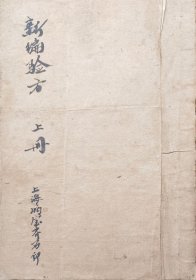 新编验方
上册
上海
印